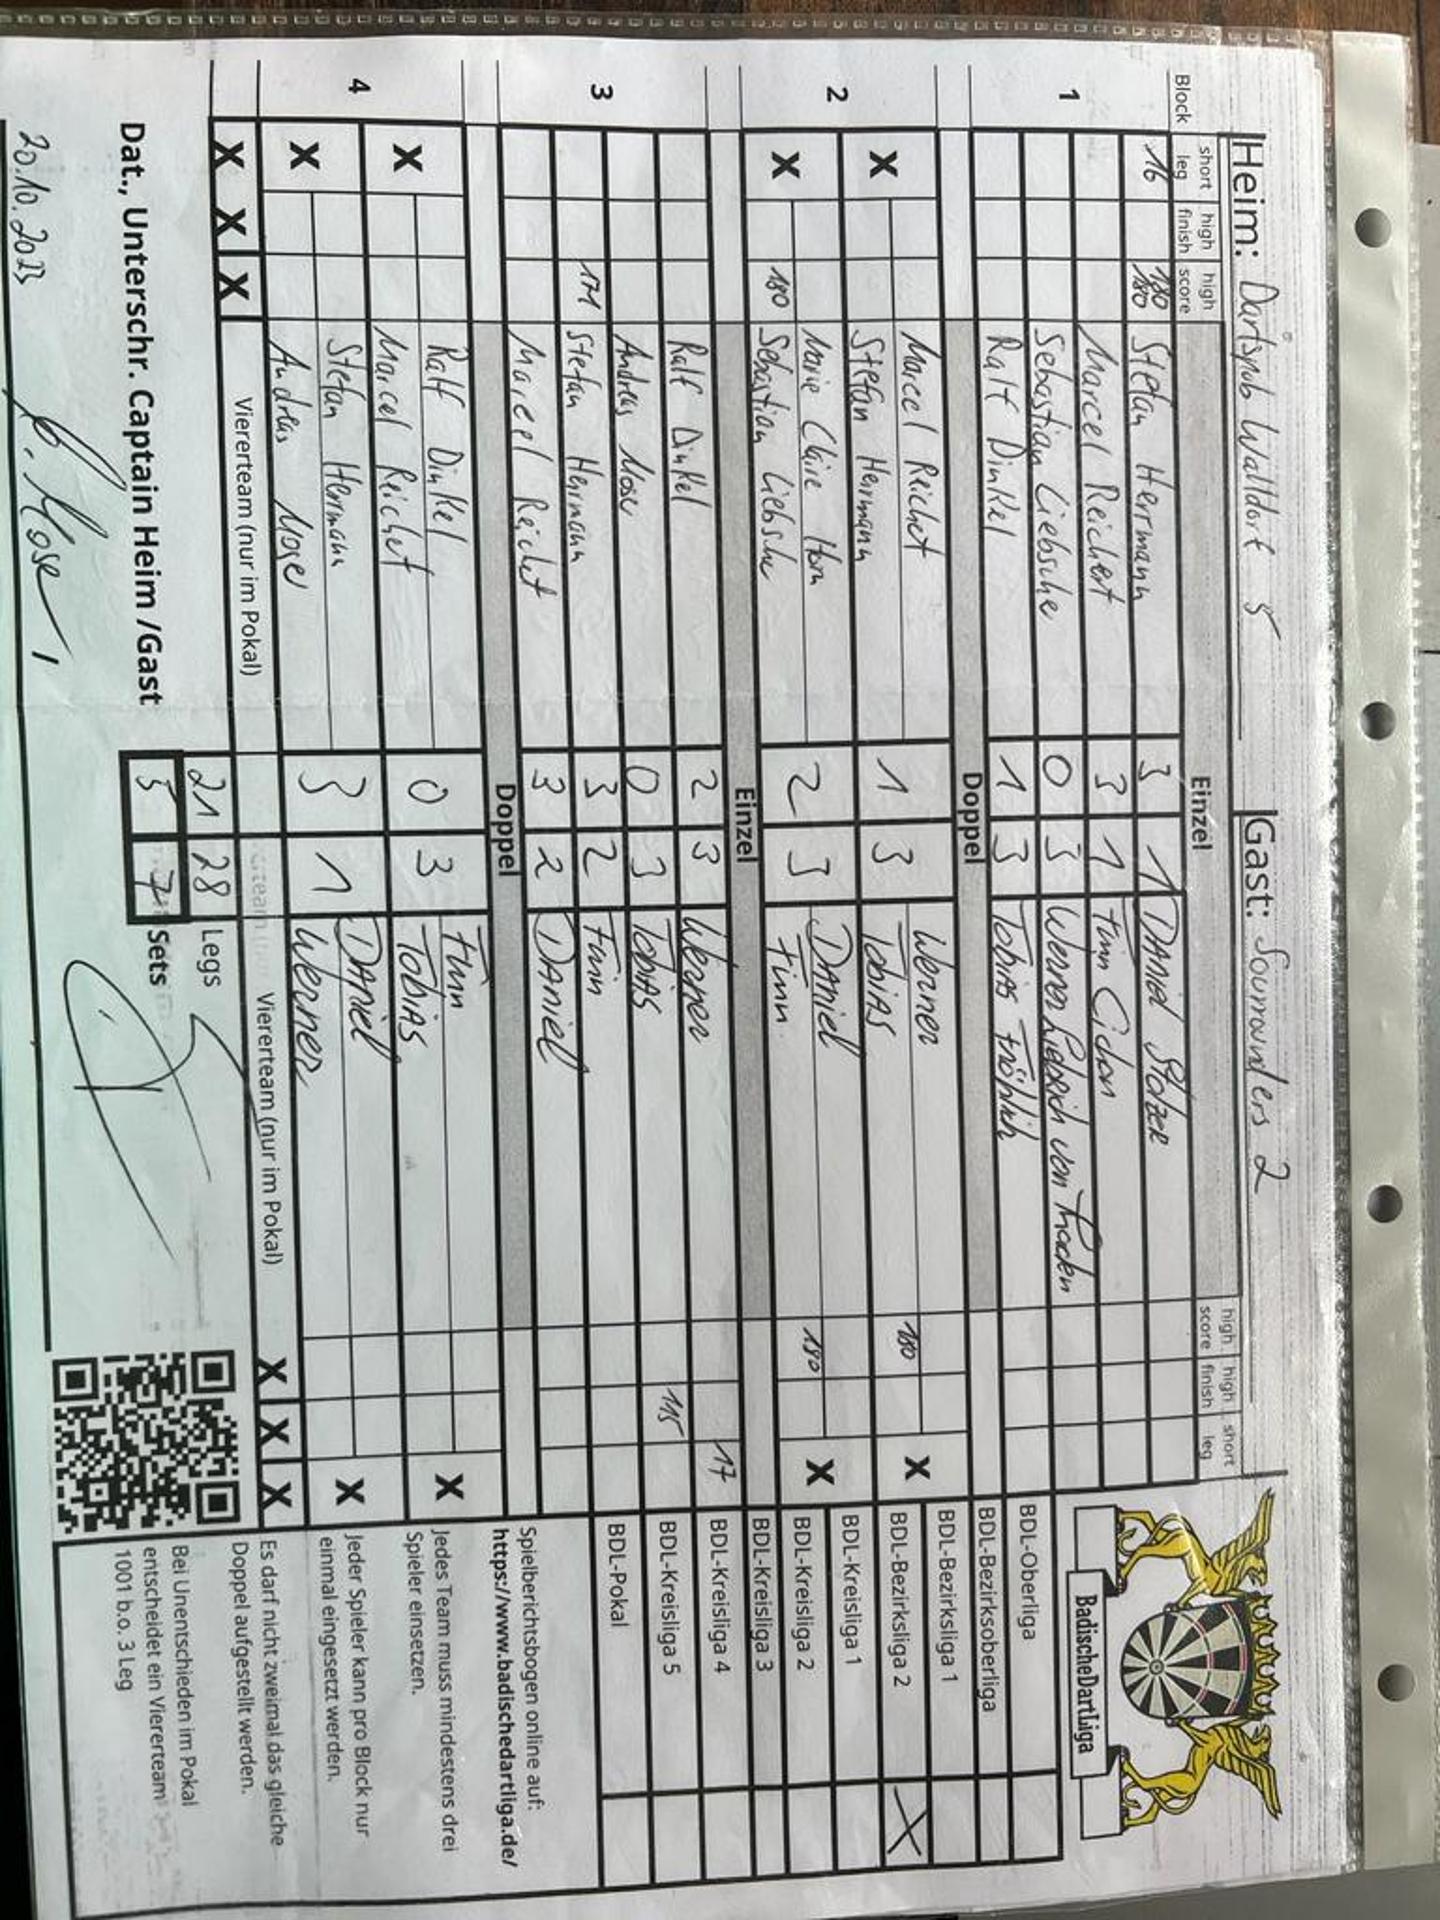 Heim: Dartsyndo Walldorf 5 Gast: Sourrounders 2
Block short leg high finish high score Einzel high score high finish short leg
1
16 180 180 Stefan Herrmann 3 1 DANiel Stolzer
Marcel Reichert 3 1 Finn Cidon
Sebastian Liebsche 0 3 Werner Lieberich von Hacken
Ralf Dinkel 1 3 Tobias Fröhlich
Doppel
2
X Marcel Reichet 1 3 Werner X
Stefan Herrmann TobiAS 180
X Marie Claire Horn 2 3 DANiel 180 X
180 Sebastian Liebsche Finn
Einzel
3
Ralf Dinkel 2 3 Werner 17
Andreas Moser 0 3 TobiAS 115
171 Stefan Herrmann 3 2 Finn
Marcel Reichet 3 2 DANiel
Doppel
4
X Ralf Dinkel 0 3 Finn X
Marcel Reichet TobiAS
X Stefan Hermann 3 1 DANiel X
Andreas Moser Werner
X X X Viererteam (nur im Pokal) Viererteam (nur im Pokal) X X X
21 28 Legs
Dat., Unterschr. Captain Heim /Gast 5 7 Sets
20.10.2023 A. Moser
BadischeDartLiga
BDL-Oberliga
BDL-Bezirksoberliga
BDL-Bezirksliga 1
BDL-Bezirksliga 2 X
BDL-Kreisliga 1
BDL-Kreisliga 2
BDL-Kreisliga 3
BDL-Kreisliga 4
BDL-Kreisliga 5
BDL-Pokal
Spielberichtsbogen online auf:
https://www.badischedartliga.de/
Jedes Team muss mindestens drei
Spieler einsetzen.
Jeder Spieler kann pro Block nur
einmal eingesetzt werden.
Es darf nicht zweimal das gleiche
Doppel aufgestellt werden.
Bei Unentschieden im Pokal
entscheidet ein Viererteam
1001 b.o. 3 Leg